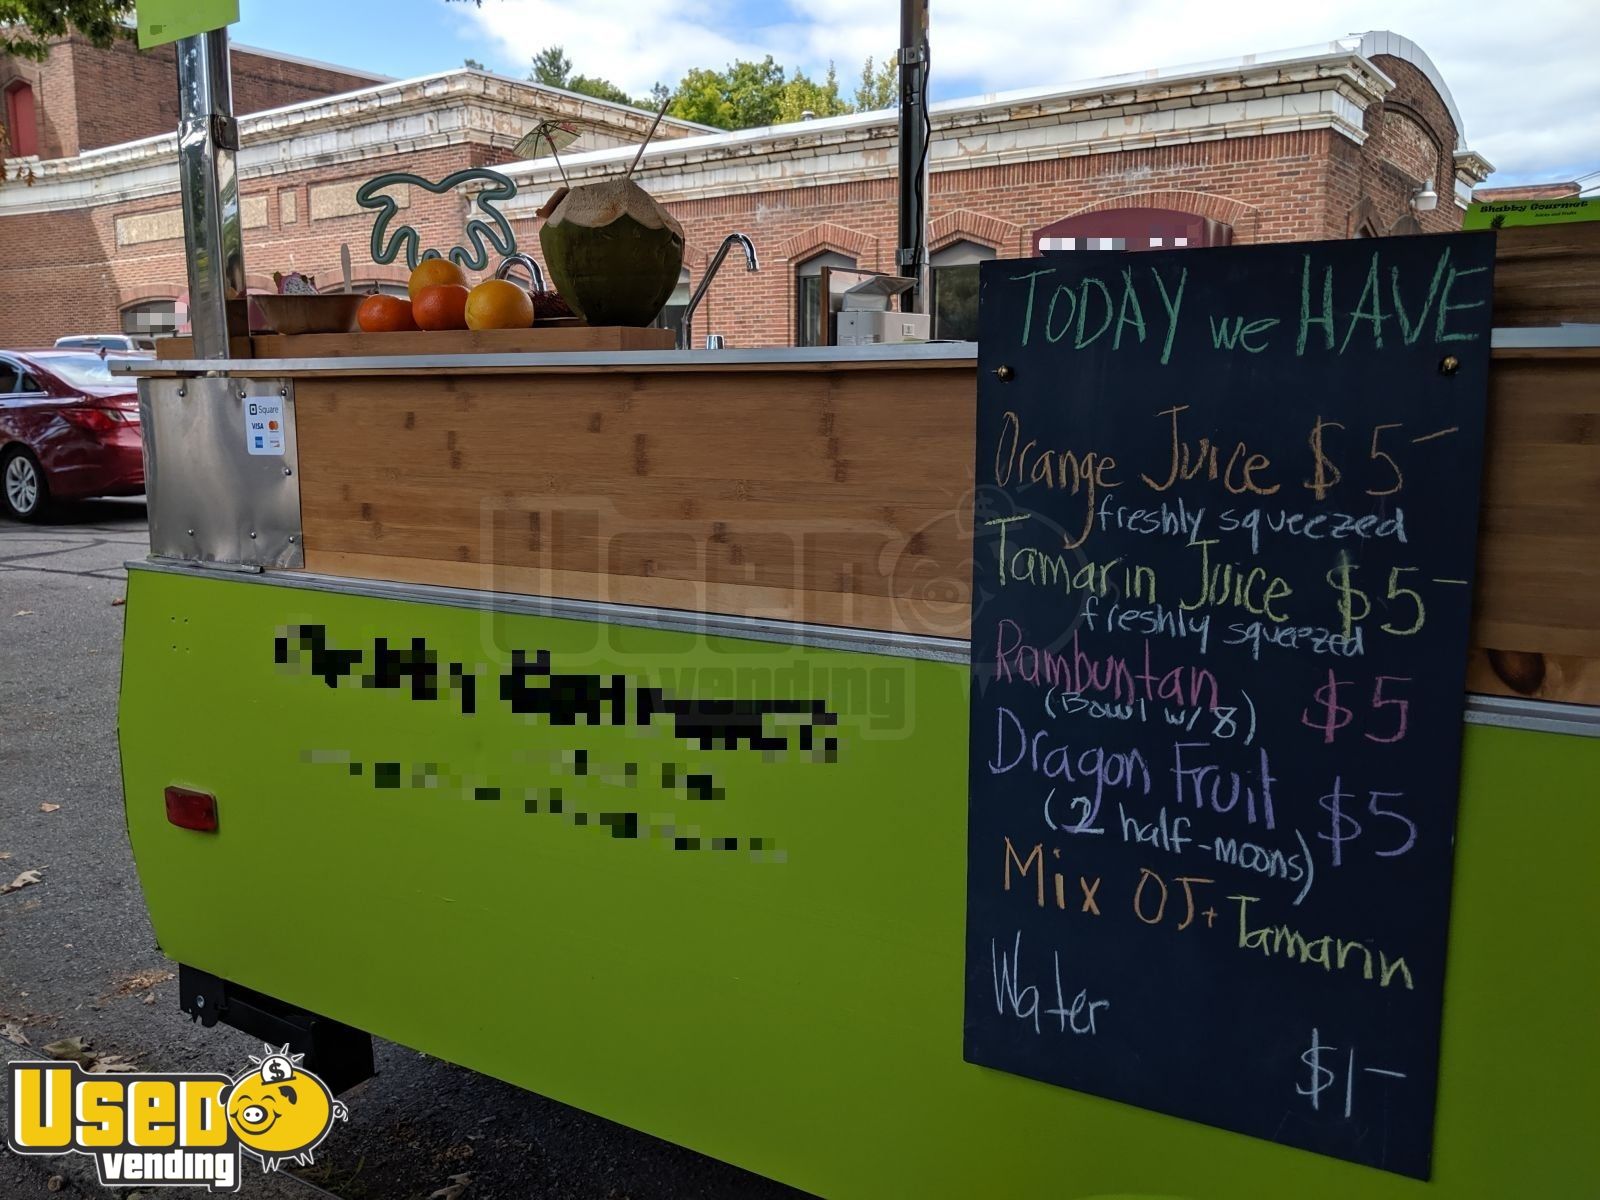 Shabby Gourmet
Juices and Fruits
TODAY we HAVE
Square
VISA
Orange Juice $5-
freshly squeezed
Tamarin Juice $5-
freshly squeezed
Rambuntan $5
(Bowl w/ 8)
Dragon Fruit $5
(2 half-moons)
Mix OJ + Tamarin
Water
$1-
Used
vending
Used
vending